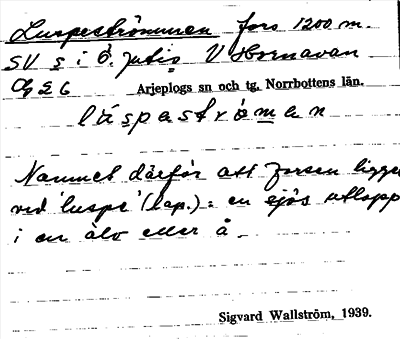 Luspeströmmen fors 1200 m.
SV s i Ö. Jutis V Hornavan
Arjeplogs sn och tg, Norrbottens län.
lå̤spastrǿman
Namnet därför att forsen ligger
vid 'luspe' (lap.): en sjös utlopp
i en älv eller å.
Sigvard Wallström, 1939.